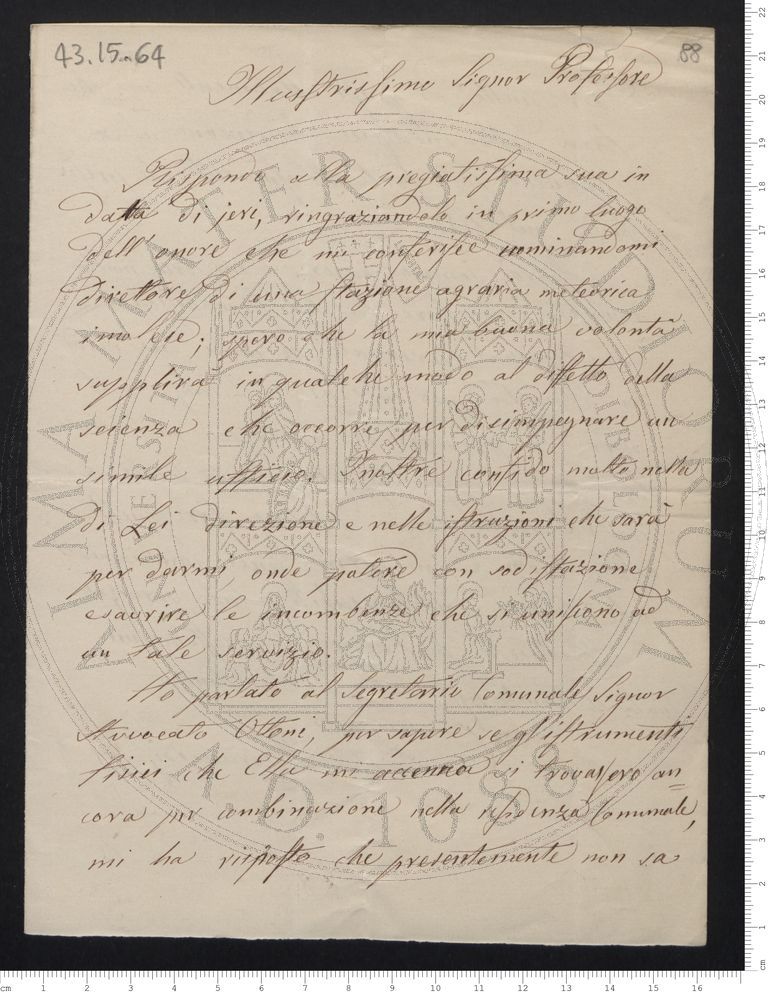 43.15.64
88
Illustrissimo Signor Professore
Rispondo alla pregiatissima sua in
data di jeri, ringraziandola in primo luogo
dell'onore che mi conferisce nominandomi
direttore di una stazione agraria meteorica
imolese; spero che la mia buona volontà
supplirà in qualche modo al difetto della
scienza che occorre per disimpegnare un
simile ufficio. Inoltre confido molto nella
di Lei direzione e nelle istruzioni che sarà
per darmi, onde potere con sodisfazione
esaurire le incombenze che si uniscono ad
un tale servizio.
Ho parlato al Segretario Comunale Signor
Avvocato Ottoni, per sapere se gl'istrumenti
fisici che Ella mi accenna si trovassero an=
cora per combinazione nella residenza Comunale,
mi ha risposto che presentemente non sa